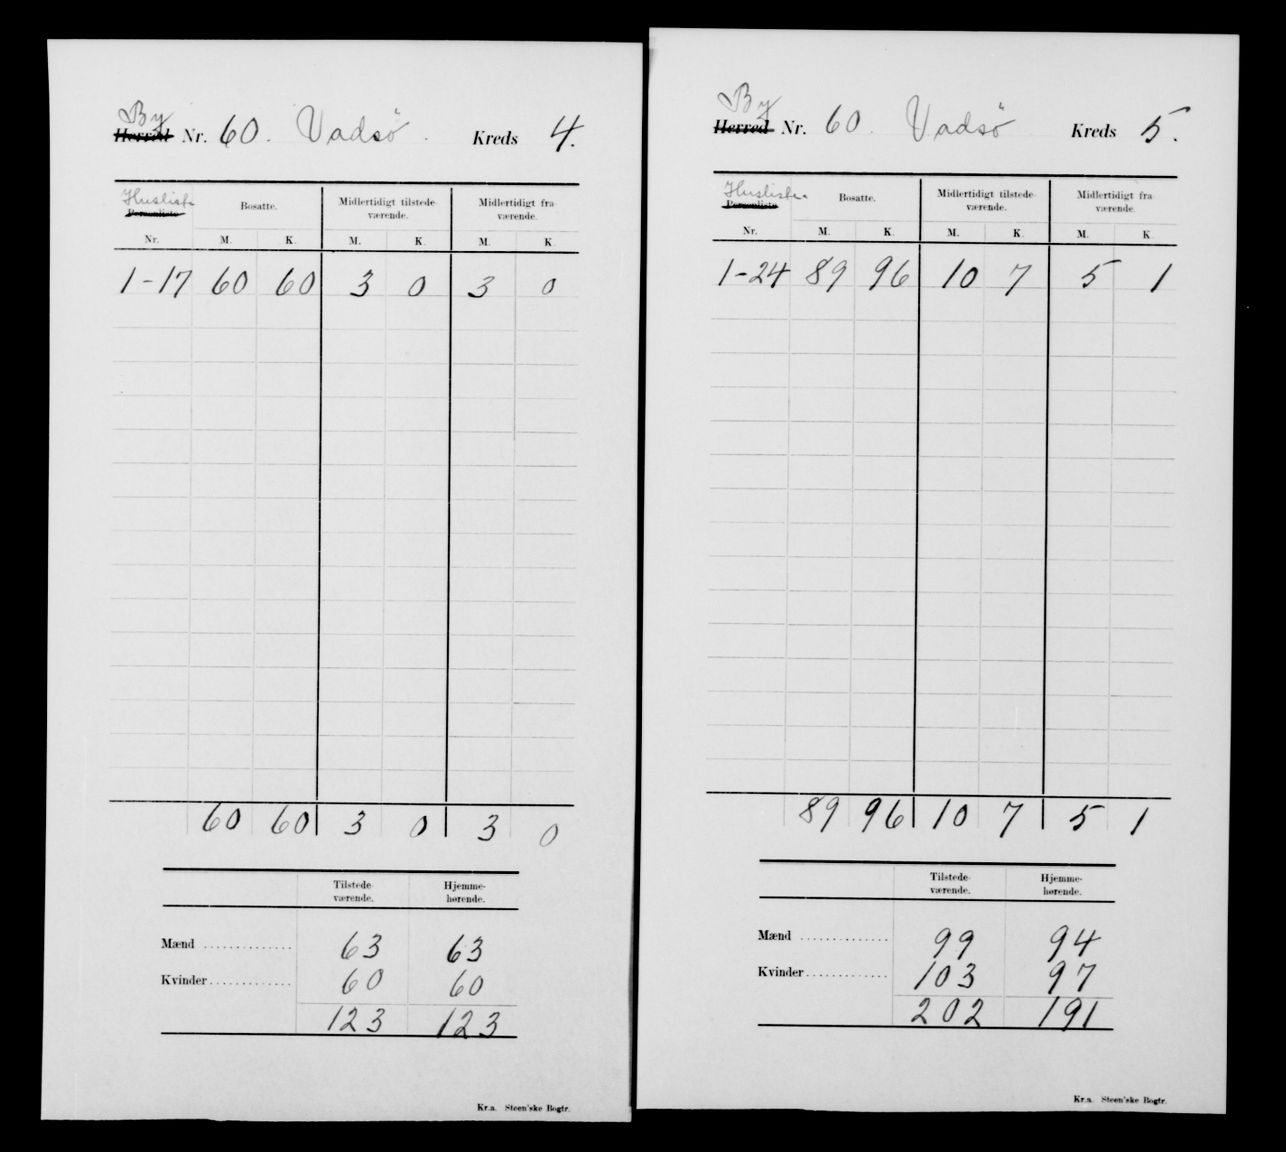 By
Herred Nr. 60. Vadsö. Kreds 4.
Husliste
Personliste
Nr.
Bosatte.
Midlertidigt tilstede-
værende.
Midlertidigt fra-
værende.
M. K. M. K. M. K.
1-17 60 60 3 0 3 0
60 60 3 0 3 0
Tilstede-
værende.
Hjemme-
hørende.
Mænd 63 63
Kvinder 60 60
123 123
Kr.a. Steen'ske Bogtr.
By
Herred Nr. 60. Vadsö Kreds 5.
Husliste.
Personliste
Nr.
Bosatte.
Midlertidigt tilstede-
værende.
Midlertidigt fra-
værende.
M. K. M. K. M. K.
1-24 89 96 10 7 5 1
89 96 10 7 5 1
Tilstede-
værende.
Hjemme-
hørende.
Mænd 99 94
Kvinder 103 97
202 191
Kr.a. Steen'ske Bogtr.